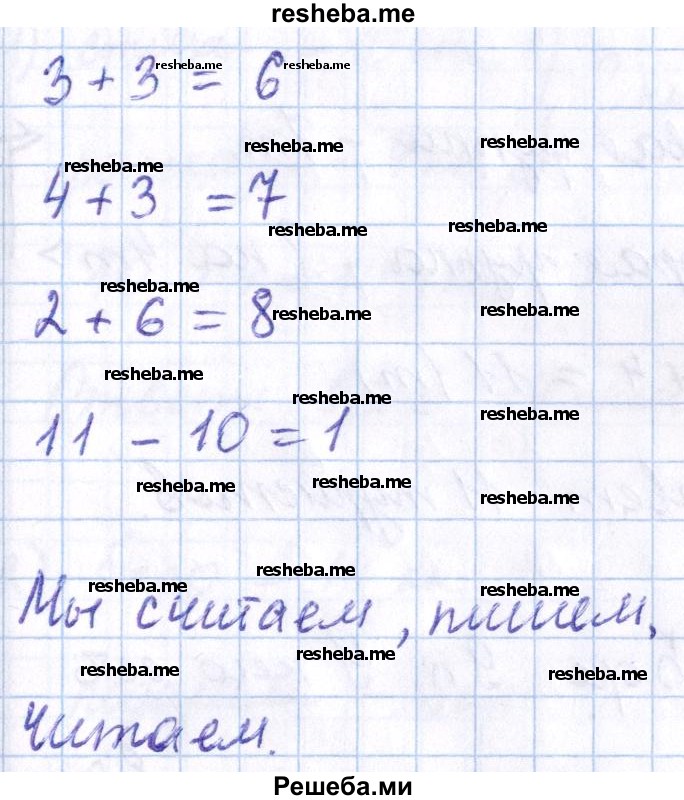 resheba.me
3 + 3 resheba.me = 6 resheba.me
resheba.me resheba.me
resheba.me
4 + 3 = 7
resheba.me resheba.me
resheba.me
2 + 6 = 8 resheba.me resheba.me
resheba.me
resheba.me
resheba.me
11 - 10 = 1
resheba.me resheba.me
resheba.me
resheba.me
resheba.me resheba.me
Мы считаем, пишем,
resheba.me
resheba.me resheba.me
читаем.
Решеба.ми